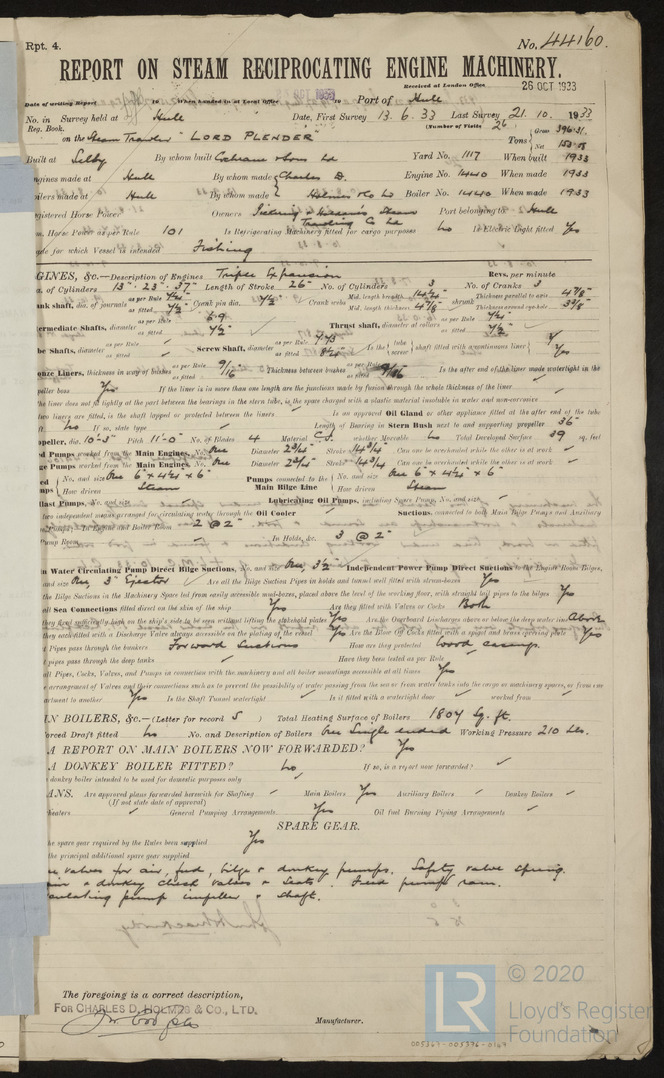 Rpt. 4.
No. 44160.
REPORT ON STEAM RECIPROCATING ENGINE MACHINERY.
Received at London Office
26 OCT 1933
Date of writing Report 19 When handed in at Local Office 19 Port of Hull
No. in Survey held at Hull Date, First Survey 13.6.33 Last Survey 21.10.1933
Reg. Book. (Number of Visits 26)
on the Steam Trawler "LORD PLENDER" Tons Gross 396.31 Net
Built at Selby By whom built Cochrane & Sons Ld Yard No. 1117 When built 1933
Engines made at Hull By whom made Charles D. Engine No. 1440 When made 1933
Boilers made at Hull By whom made Holmes & Co Ld Boiler No. 1440 When made 1933
Registered Horse Power Owners Pickering & Haldane's Steam Trawling Co Ld Port belonging to Hull
Horse Power as per Rule 101 Is Refrigerating Machinery fitted for cargo purposes No Is Electric Light fitted Yes
Trade for which Vessel is intended Fishing
GINES, &c.—Description of Engines Triple Expansion Revs. per minute
of Cylinders 13" 23" 37" Length of Stroke 26" No. of Cylinders 3 No. of Cranks 3
ank shaft, dia. of journals as per Rule as fitted 7½ Crank pin dia. 7½ Crank webs Mid. length breadth 14¾ Mid. length thickness 4⅞ shrunk Thickness parallel to axis 4⅞ Thickness around eye-hole
termediate Shafts, diameter as per Rule 6.9 as fitted 7½ Thrust shaft, diameter at collars as per Rule as fitted 7½
be Shafts, diameter as per Rule as fitted Screw Shaft, diameter as per Rule as fitted Is the tube screw shaft fitted with a continuous liner Yes
onze Liners, thickness in way of bushes as per Rule 9/16 as fitted Thickness between bushes as per Rule as fitted 9/16 Is the after end of the liner made watertight in the
peller boss Yes If the liner is in more than one length are the junctions made by fusion through the whole thickness of the liner
he liner does not fit tightly at the part between the bearings in the stern tube, is the space charged with a plastic material insoluble in water and non-corrosive
two liners are fitted, is the shaft lapped or protected between the liners Is an approved Oil Gland or other appliance fitted at the after end of the tube
No If so, state type Length of Bearing in Stern Bush next to and supporting propeller 36"
peller, dia. 10-3" Pitch 11-0" No. of Blades 4 Material C.I. whether Moveable No Total Developed Surface 39 sq. feet
d Pumps worked from the Main Engines, No. One Diameter 2¾" Stroke 14¾ Can one be overhauled while the other is at work
ge Pumps worked from the Main Engines, No. One Diameter 2¾" Stroke 14¾ Can one be overhauled while the other is at work
No. and size One 6" x 4¼ x 6" Pumps connected to the Main Bilge Line No. and size One 6" x 4¼ x 6"
How driven Steam How driven Steam
llast Pumps, No. and size Lubricating Oil Pumps, including Spare Pump, No. and size
two independent means arranged for circulating water through the Oil Cooler Suctions, connected to both Main Bilge Pumps and Auxiliary
In Engine and Boiler Room 2 @ 2"
Pump Room In Holds, &c. 3 @ 2"
n Water Circulating Pump Direct Bilge Suctions, No. and size One, 3½ Independent Power Pump Direct Suctions to the Engine Room Bilges,
and size One, 3" Ejector Are all the Bilge Suction Pipes in holds and tunnel well fitted with strum-boxes Yes
the Bilge Suctions in the Machinery Space led from easily accessible mud-boxes, placed above the level of the working floor, with straight tail pipes to the bilges Yes
all Sea Connections fitted direct on the skin of the ship Yes Are they fitted with Valves or Cocks Both
they fixed sufficiently high on the ship's side to be seen without lifting the stokehold plates Yes Are the Overboard Discharges above or below the deep water line Above
they each fitted with a Discharge Valve always accessible on the plating of the vessel Yes Are the Blow Off Cocks fitted with a spigot and brass covering plate Yes
t Pipes pass through the bunkers Forward Suctions How are they protected Wood casings.
t pipes pass through the deep tanks Have they been tested as per Rule
all Pipes, Cocks, Valves, and Pumps in connection with the machinery and all boiler mountings accessible at all times Yes
e arrangement of Valves and their connections such as to prevent the possibility of water passing from the sea or from water tanks into the cargo or machinery spaces, or from one
artment to another Yes Is the Shaft Tunnel watertight Is it fitted with a watertight door worked from
IN BOILERS, &c.—(Letter for record S) Total Heating Surface of Boilers 1804 Sq. ft.
orced Draft fitted No No. and Description of Boilers One Single ended Working Pressure 210 lbs.
A REPORT ON MAIN BOILERS NOW FORWARDED? Yes
A DONKEY BOILER FITTED? No If so, is a report now forwarded?
donkey boiler intended to be used for domestic purposes only
ANS. Are approved plans forwarded herewith for Shafting Main Boilers Yes Auxiliary Boilers Donkey Boilers
(If not state date of approval)
heaters General Pumping Arrangements Yes Oil fuel Burning Piping Arrangements
SPARE GEAR.
he spare gear required by the Rules been supplied Yes
the principal additional spare gear supplied
valves for air, feed, bilge & donkey pumps. Safety valve spring.
& donkey check valves & seats. Feed pump ram.
culating pump impeller & shaft.
The foregoing is a correct description,
FOR CHARLES D. HOLMES & CO., LTD.
Manufacturer.
© 2020
LR
Lloyd's Register
Foundation
005367-005376-0169